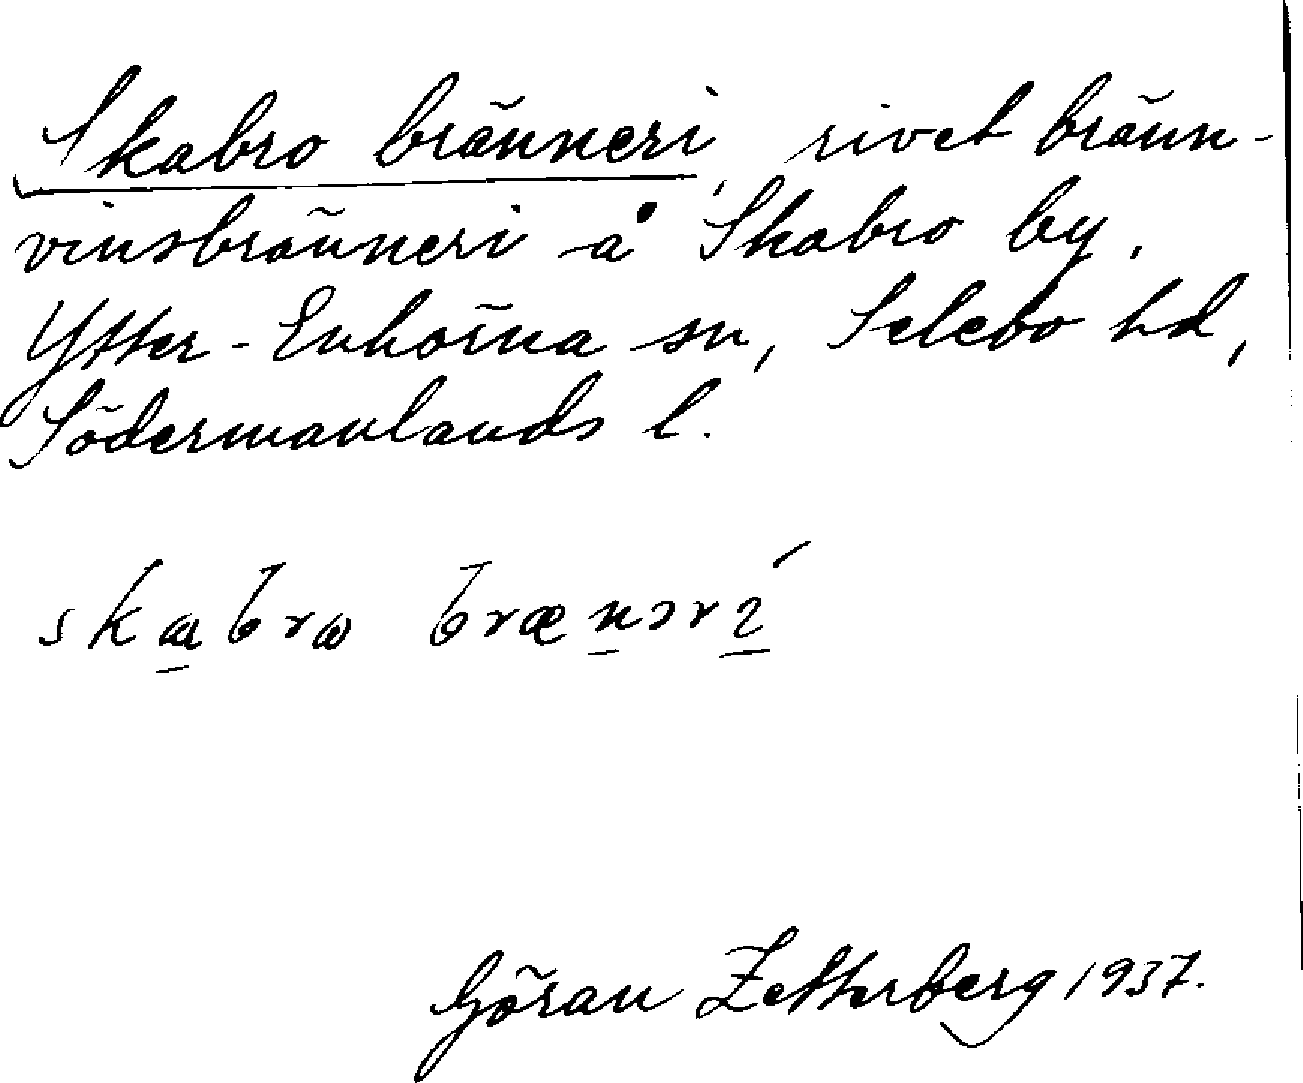 Skabro bränneri, rivet bränn-
vinsbränneri å Skabro by,
Ytter-Enhörna sn, Selebo hd,
Södermanlands l.
Göran Zetterberg 1937.